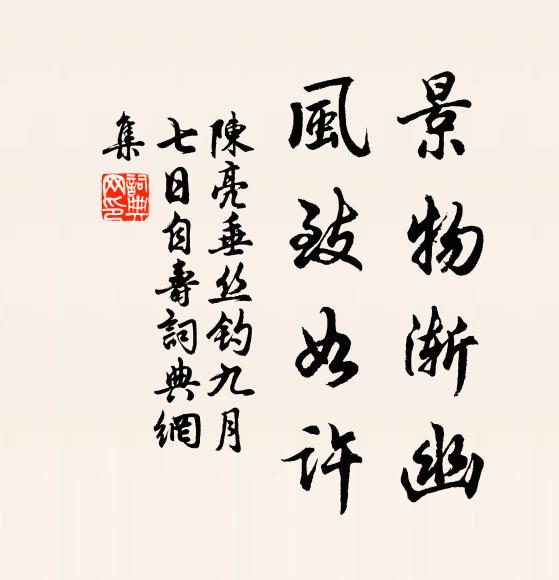 景物漸幽
風致如許
陳亮垂丝釣九月
七日自壽詞典網
集
詞典
网印